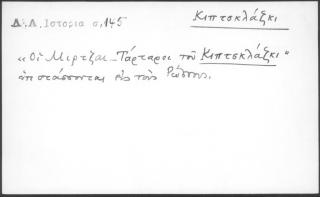 Δ.Α. Ιστορια σ, 145
Κιπτσκλάξκι
«Οἱ Μιρτζαι - Τάρταροι τοῦ Κιπτσκλάξκι"
ὑποτάσσονται εἰς τοὺς Ρώσσους.